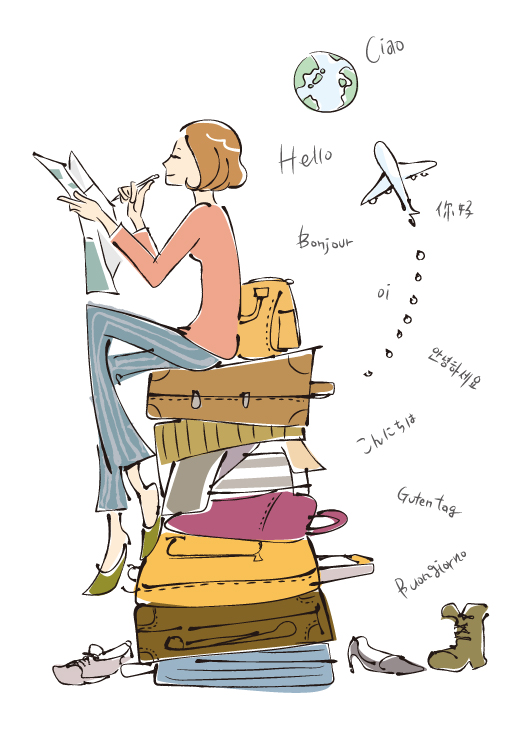 Ciao
Hello
你好
Bonjour
oi
안녕하세요
こんにちは
Guten tag
Buongiorno